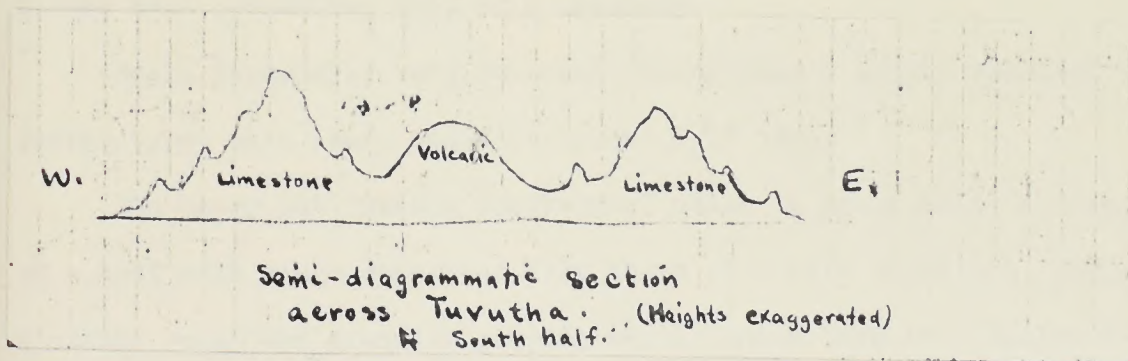 W.
Limestone
Volcanic
Limestone
E.
Semi-diagrammatic section
across Tuvutha. (Heights exaggerated)
South half.